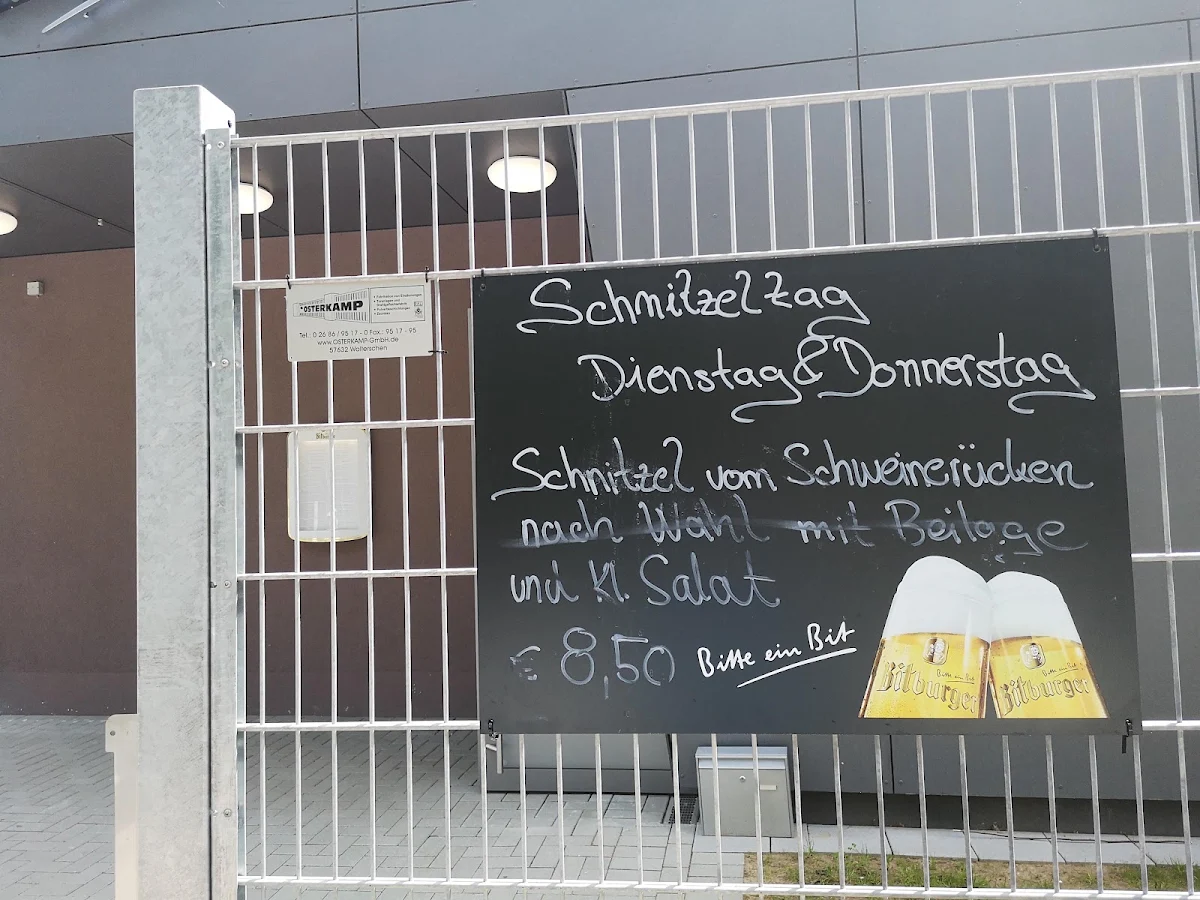 OSTERKAMP
Tel.: 0 26 86 / 95 17 - 0 Fax.: 95 17 - 95
www.OSTERKAMP-GmbH.de
57632 Walterschen
Schnitzeltag
Dienstag & Donnerstag
Schnitzel vom Schweinerücken
nach Wahl mit Beilage
und Kl. Salat
€ 8,50
Bitte ein Bit
Bitburger
Bitburger